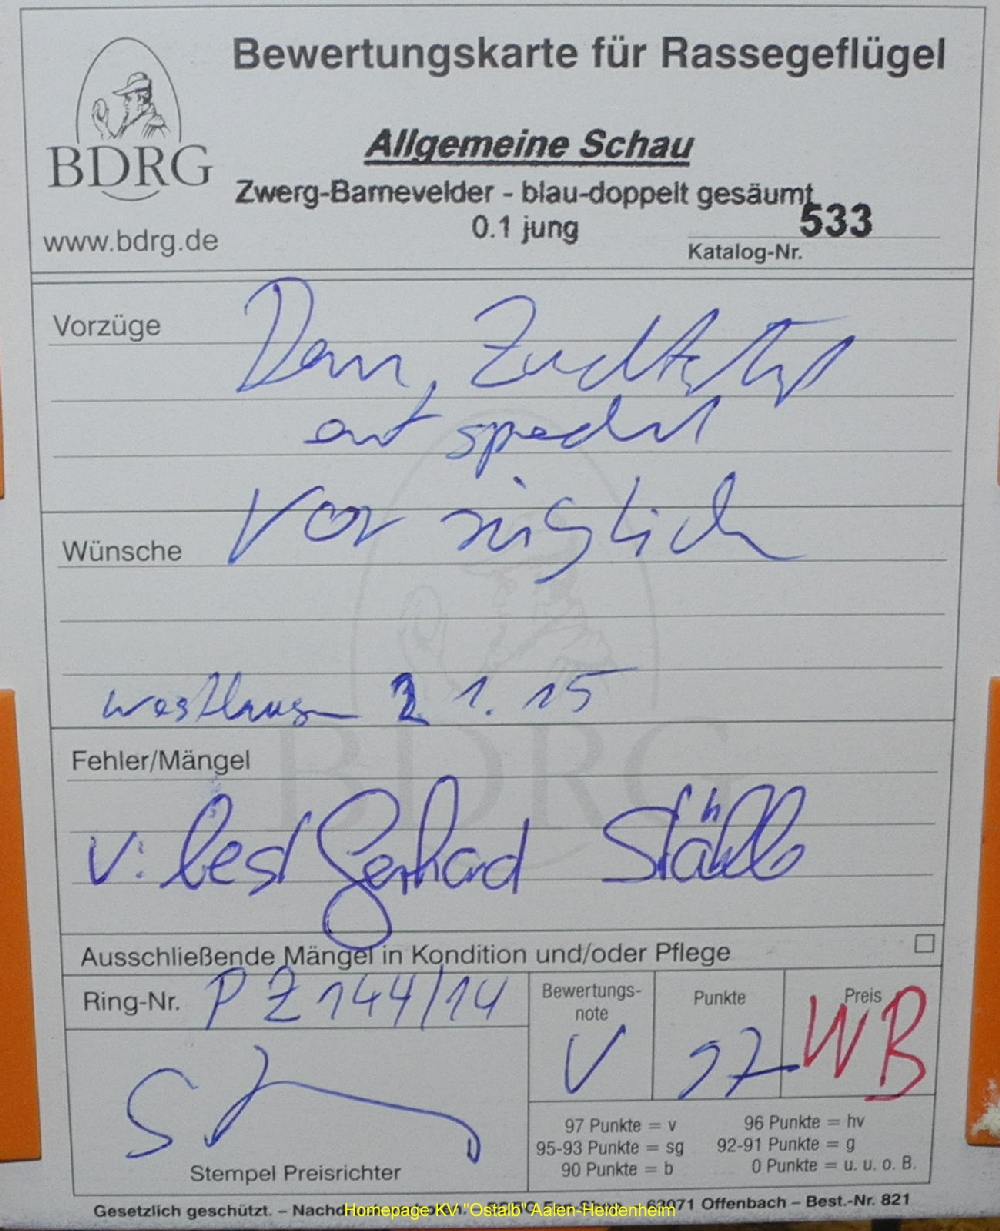 Bewertungskarte für Rassegeflügel
BDRG
www.bdrg.de
Allgemeine Schau
Zwerg-Barnevelder - blau-doppelt gesäumt
0.1 jung
533
Katalog-Nr.
Vorzüge
Vorzüglich
Wünsche
Westhausen 1.15
BDRG
Fehler/Mängel
v: Gerhard Stähle
Ausschließende Mängel in Kondition und/oder Pflege
Ring-Nr. PZ 144/14
Bewertungs-
note
V
Punkte
97
Preis
WB
Stempel Preisrichter
97 Punkte = v 96 Punkte = hv
95-93 Punkte = sg 92-91 Punkte = g
90 Punkte = b 0 Punkte = u. u. o. B.
Gesetzlich geschützt. – 63071 Offenbach – Best.-Nr. 821
Homepage KV "Ostalb" Aalen-Heidenheim